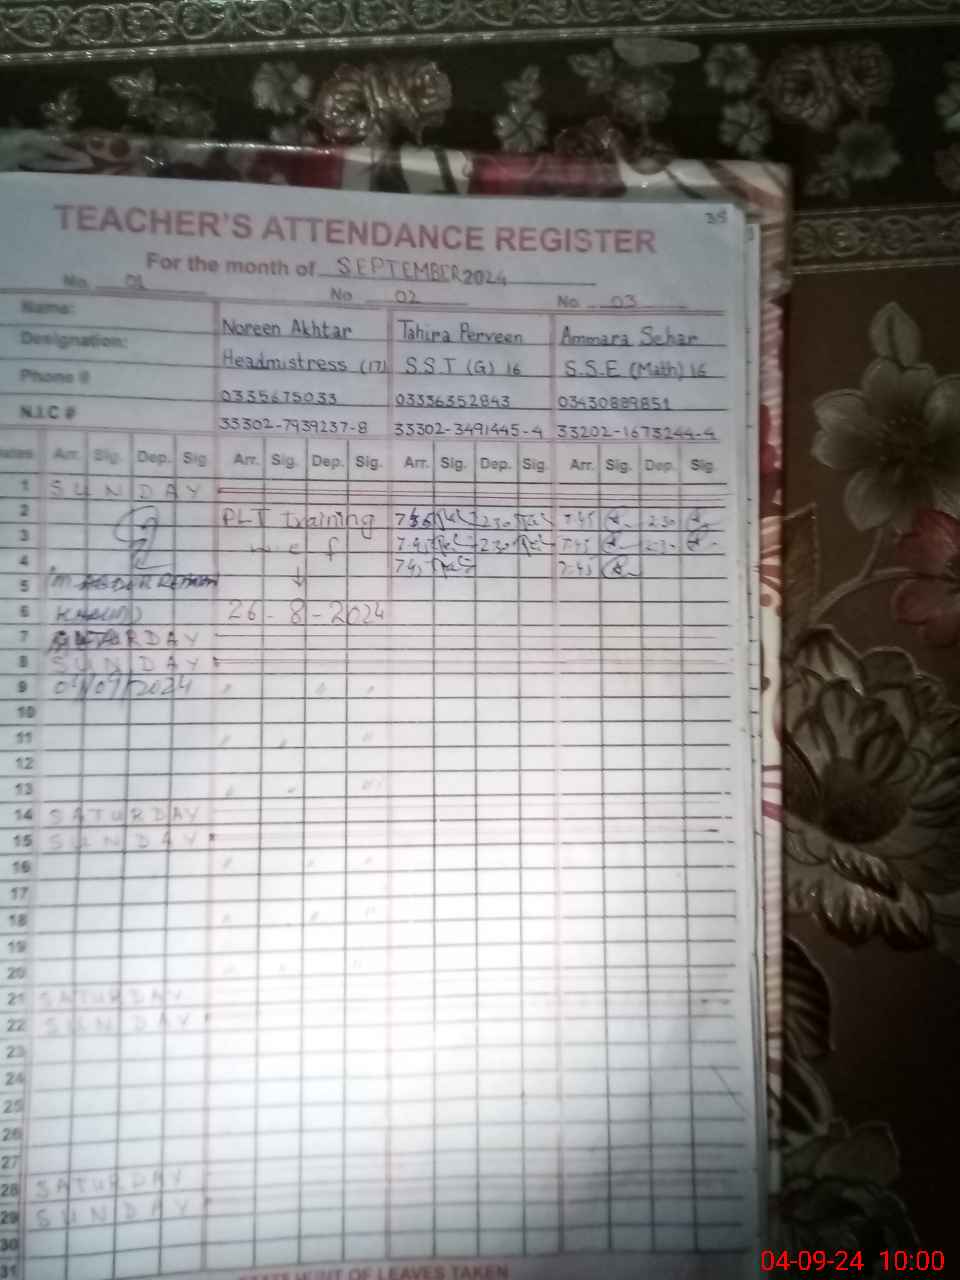 35
TEACHER'S ATTENDANCE REGISTER
For the month of SEPTEMBER 2024
No. 01 No 02 No. 03
Name: Noreen Akhtar Tahira Perveen Ammara Sehar
Designation: Headmistress (17) S.S.T (G) 16 S.S.E (Math) 16
Phone # 0335675033 03336352843 03430889851
N.I.C # 33302-7939237-8 33302-3491445-4 33202-1673244-4
Arr. Sig. Dep. Sig Arr. Sig. Dep. Sig. Arr. Sig. Dep. Sig. Arr. Sig. Dep. Sig.
1 SUNDAY
2 PLT training 2:30 7:45 2:30
3 w e f 7:45 2:30 7:45 2:30
4 7:45 7:45
5
6 26-8-2024
7 SATURDAY
8 SUNDAY
9 04/09/2024
10
11
12
13
14 SATURDAY
15 SUNDAY
16
17
18
19
20
21 SATURDAY
22 SUNDAY
23
24
25
26
27
28 SATURDAY
29 SUNDAY
30
31
STATEMENT OF LEAVES TAKEN
04-09-24 10:00